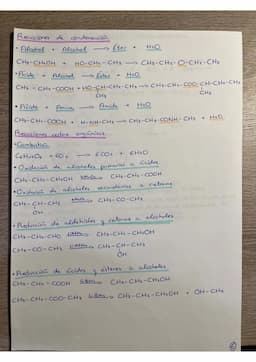 Reacciones de condensación
• Alcohol + Alcohol → Éter + H₂O
CH₃-CH₂OH + HO-CH₂-CH₃ → CH₃-CH₂-O-CH₂-CH₃
• Ácido + Alcohol → Éster + H₂O
CH₃-CH₂-COOH + HO-CH-CH₂-CH₃ → CH₃-CH₂-COO-CH-CH₂-CH₃
CH₃ CH₃
• Ácido + Amina → Amida + H₂O
CH₃-CH₂-COOH + H-NH-CH₃ → CH₃-CH₂-CONH-CH₃ + H₂O
Reacciones redox orgánicas
• Combustión
+ 6O₂ → 6CO₂ + 6H₂O
• Oxidación de alcoholes primarios a ácidos
CH₃-CH₂-CH₂OH → CH₃-CH₂-COOH
• Oxidación de alcoholes secundarios a cetonas
CH₃-CH-CH₃ → CH₃-CO-CH₃
OH
• Reducción de aldehídos y cetonas a alcoholes
CH₃-CH₂-CHO → CH₃-CH₂-CH₂OH
CH₃-CO-CH₃ → CH₃-CH-CH₃
OH
• Reducción de ácidos y ésteres a alcoholes
CH₃-CH₂-COOH → CH₃-CH₂-CH₂OH
CH₃-CH₂-COO-CH₃ → CH₃-CH₂-CH₂OH + OH-CH₃